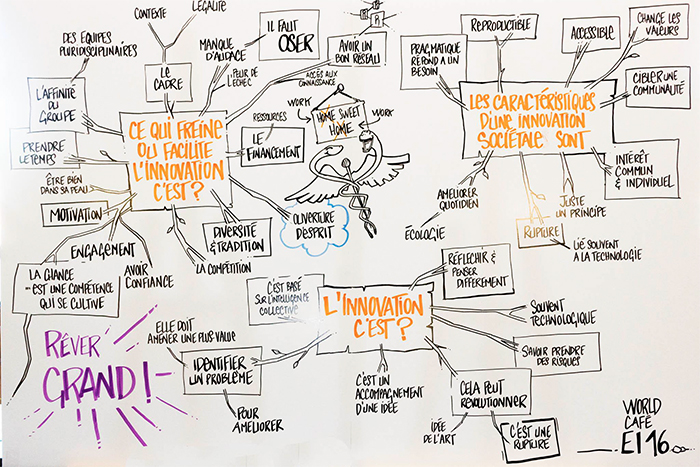 CONTEXTE
LÉGALITÉ
DES ÉQUIPES
PLURIDISCIPLINAIRES
LE
CADRE
MANQUE
D'AUDACE
IL FAUT
OSER
PEUR DE
L'ECHEC
AVOIR UN
BON RÉSEAU
ACCÈS AUX
CONNAISSANCE
L'AFFINITÉ
DU
GROUPE
PRENDRE
LE TEMPS
CE QUI FREINE
OU FACILITE
L'INNOVATION
C'EST?
RESSOURCES
LE
FINANCEMENT
WORK
HOME SWEET
HOME
WORK
ÊTRE BIEN
DANS SA PEAU
MOTIVATION
ENGAGEMENT
AVOIR
CONFIANCE
LA CHANCE
EST UNE COMPÉTENCE
QUI SE CULTIVE
DIVERSITÉ
& TRADITION
LA COMPÉTITION
OUVERTURE
D'ESPRIT
REPRODUCTIBLE
ACCESSIBLE
CHANGE LES
VALEURS
PRAGMATIQUE
RÉPOND A UN
BESOIN
CIBLER UNE
COMMUNAUTÉ
LES CARACTÉRISTIQUES
D'UNE INNOVATION
SOCIÉTALE SONT
INTÉRÊT
COMMUN
& INDIVIDUEL
AMÉLIORER
QUOTIDIEN
ÉCOLOGIE
JUSTE
UN PRINCIPE
RUPTURE
LIÉ SOUVENT
A LA TECHNOLOGIE
RÊVER
GRAND!
C'EST BASÉ
SUR L'INTELLIGENCE
COLLECTIVE
L'INNOVATION
C'EST?
RÉFLECHIR &
PENSER
DIFFEREMENT
ELLE DOIT
AMENER UNE PLUS VALUE
IDENTIFIER
UN PROBLÈME
POUR
AMELIORER
C'EST UN
ACCOMPAGNEMENT
D'UNE IDÉE
SOUVENT
TECHNOLOGIQUE
SAVOIR PRENDRE
DES RISQUES
CELA PEUT
RÉVOLUTIONNER
IDÉE
DE L'ART
C'EST UNE
RUPTURE
WORLD
CAFÉ
EI 16